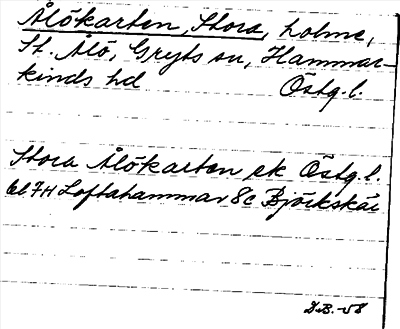 Ålökarten, Stora, holme,
St. Ålö, Gryts sn, Hammar-
kinds hd Östg.l.
Stora Ålökarten ek Östg.l.
bl 7H Loftahammar 8c Björkskär
D.B. -58